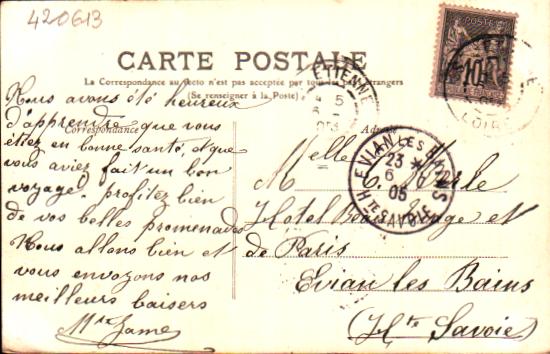 420613
CARTE POSTALE
La Correspondance au recto n'est pas acceptée par tous les pays étrangers
(Se renseigner à la Poste)
Correspondance
Nous avons été heureux
d'apprendre que vous
étiez en bonne santé, et que
vous aviez fait un bon
voyage! profitez bien
de vos belles promenades
Nous allons bien et
vous envoyons nos
meilleurs baisers
Adresse
Melle
M
Hôtel Beau Rivage et
de Paris
Evian les Bains
(Hte Savoie)
POSTE
10
ETIENNE
LOIRE
EVIAN LES BAINS
23
6
05
HTE SAVOIE